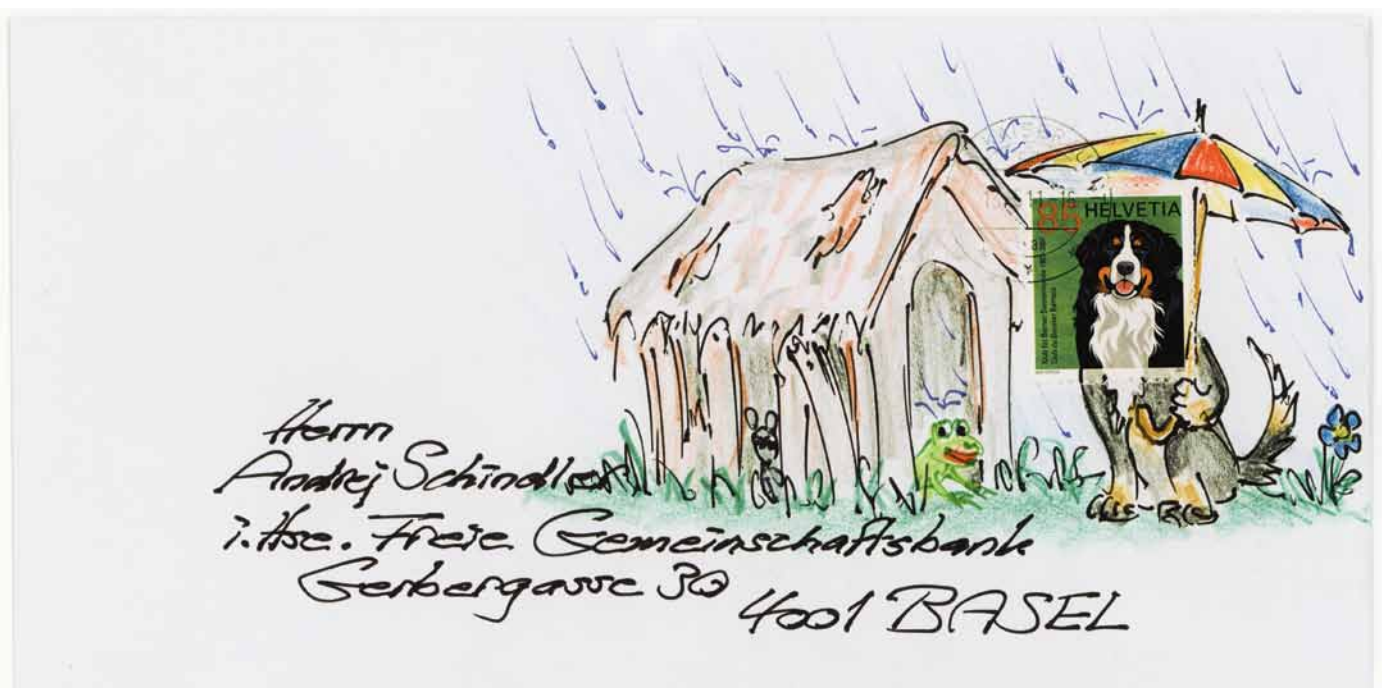 85 HELVETIA
Herrn
Andrej Schindler
i. Hse. Freie Gemeinschaftsbank
Gerbergasse 30
4001 BASEL